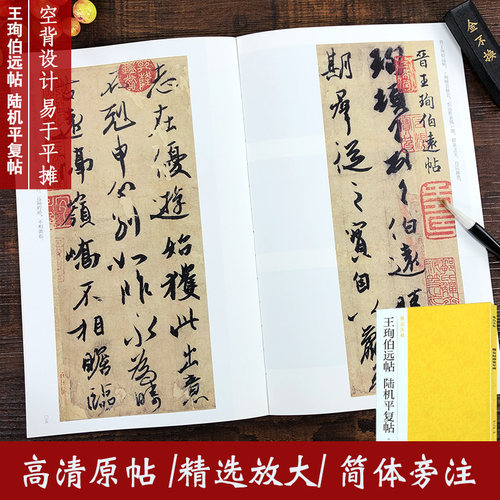 空背设计 易于平摊
王珣伯远帖 陆机平复帖
金不換
晉王珣伯遠帖
珣頓首頓首伯遠勝
期群從之寶自以羸
志在優遊始獲此出意
不剋申分別如昨永為疇
古遠隔嶺嶠不相瞻臨
王珣伯远帖 陆机平复帖
高清原帖 /精选放大/ 简体旁注